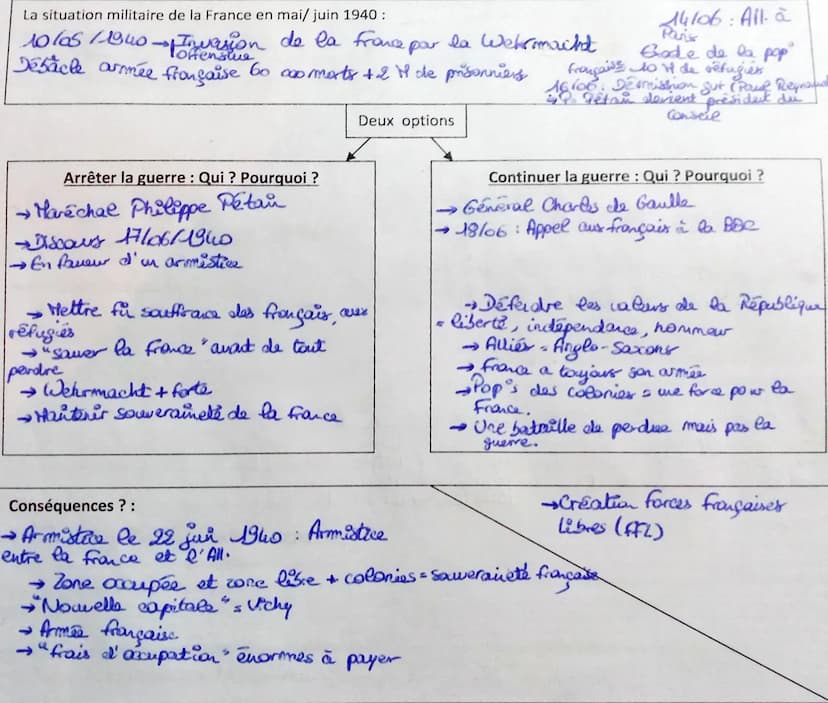 La situation militaire de la France en mai/ juin 1940 :
10/05/1940 → Invasion de la France par la Wehrmacht
Offensive
Débâcle armée française 60 000 morts + 2 M de prisonniers
14/06 : All. à
Paris
Exode de la pop°
française 10 M de réfugiés
16/06 : Démission gvt (Paul Reynaud
↳ P. Pétain devient président du
Conseil
Deux options
Arrêter la guerre : Qui ? Pourquoi ?
→ Maréchal Philippe Pétain
→ Discours 17/06/1940
→ En faveur d'un armistice
→ Mettre fin souffrance des français, aux
réfugiés
→ "sauver la France" avant de tout
perdre
→ Wehrmacht + forte
→ Maintenir souveraineté de la France
Continuer la guerre : Qui ? Pourquoi ?
→ Général Charles de Gaulle
→ 18/06 : Appel aux français à la BBC
→ Défendre les valeurs de la République
= liberté, indépendance, honneur
→ Alliés = Anglo-Saxons
→ France a toujours son armée
→ Pop°s des colonies = une force pour la
France.
→ Une bataille de perdue mais pas la
guerre.
Conséquences ? :
→ Armistice le 22 juin 1940 : Armistice
entre la France et l'All.
→ Zone occupée et zone libre + colonies = souveraineté française
→ "Nouvelle capitale" = Vichy
→ Armée française
→ "frais d'occupation" énormes à payer
→ Création Forces Françaises
Libres (FFL)